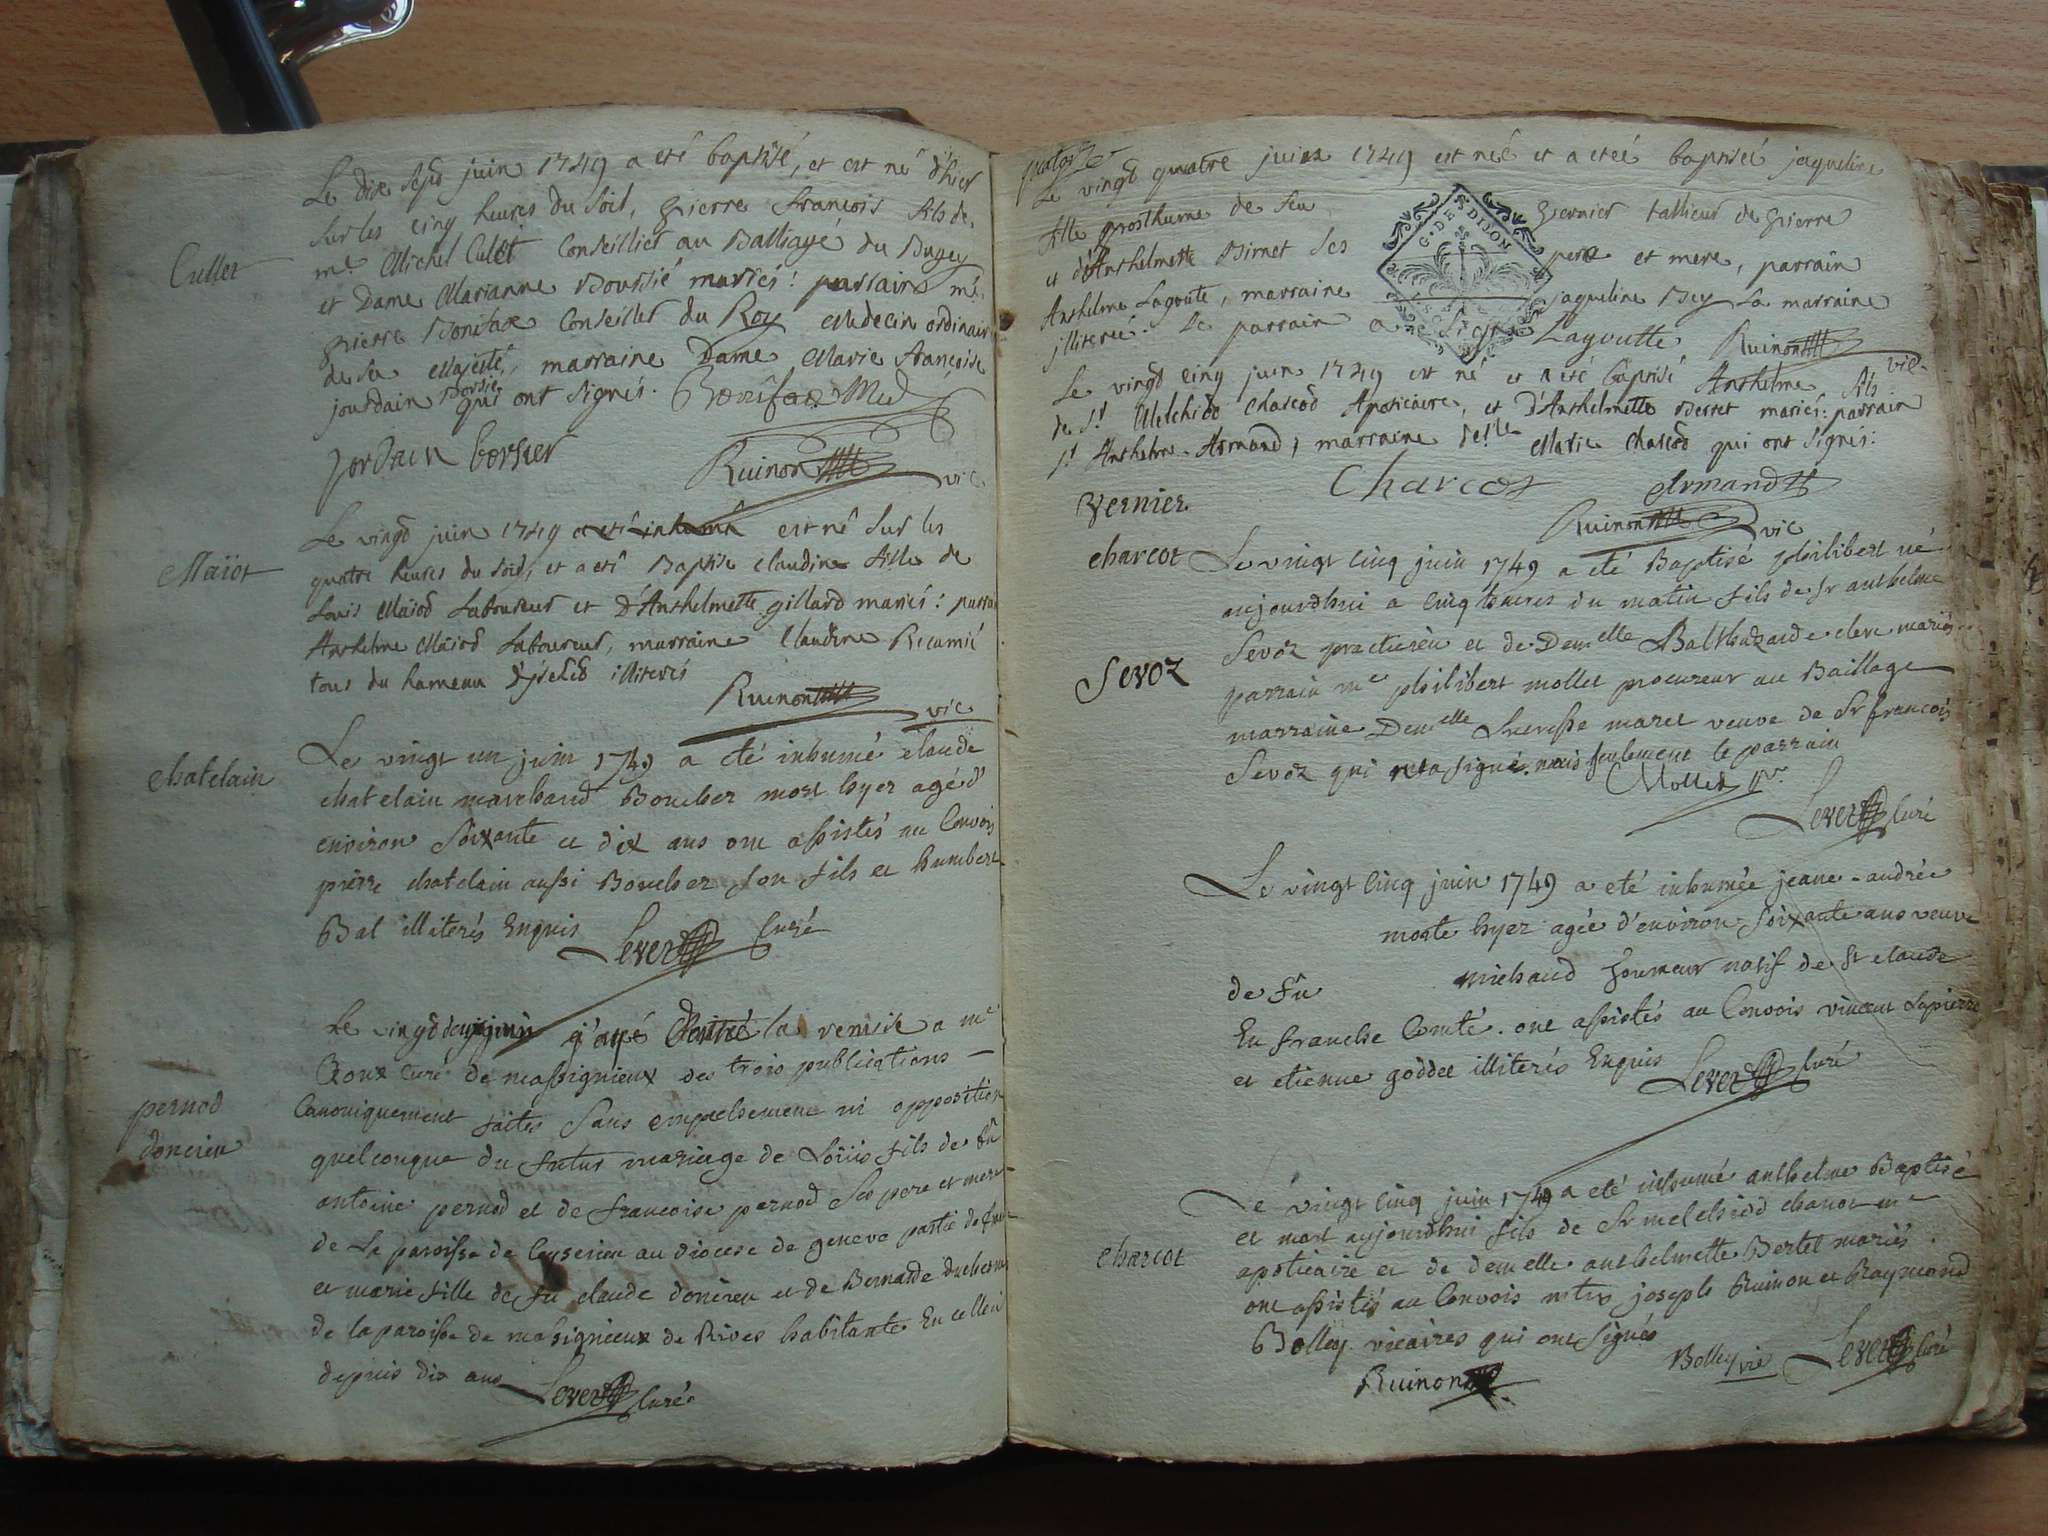 Le dix sept juin 1749 a eté baptisé, et est né d'hier
sur les cinq heures du soir, pierre françois fils de
Cullet
me Michel Culet Conseillier au Balliage du Bugey
et Dame Marianne Boussié mariés: parrain me
pierre Boniface Conseiller du Roy Medecin ordinaire
de Sa Majesté, marraine Dame Marie françoise
jourdain Borsie qui ont signés. Boniface Med
jordain borsier
Ruinon vic
Le vingt juin 1749 a eté inhumé est né sur les
Maïot
quatre heures du soir, et a eté Baptisé claudine fille de
Louis Maïod Laboureur et d'Anthelmette gillard mariés: parrain
Anthelme Maïod Laboureur, marraine Claudine Recamié
tous du hameau illiterés
Ruinon vic
Le vingt un juin 1749 a eté inhumé claude
chatelain
chatelain marchand Boucher mort hyer agé d'
environ soixante et dix ans ont assistés au Convois
pierre chatelain aussi Boucher son fils et humbert
Bal illiterés Enquis
Sever Curé
Le vingt deux juin j'ayé la remise a me
Roux Curé de massignieux des trois publications
pernod
doncieu
Canoniquement faites sans empechement ni opposition
quelconque du futur mariage de Loüis fils de fû
antoine pernod et de francoise pernod ses pere et mere
de la paroisse de Ceyserieu au diocese de geneve partie de france
et marie fille de fû claude doncieu et de Bernarde duchesne
de la paroisse de massignieux de Rives habitante En celleci
depuis dix ans Sever Curé
Le vingt quatre juin 1749 est neé et a eteé baptisée jaqueline
fille posthume de feu pernier tallieur de pierre
et d'Anthelmette Birnet ses pere et mere, parrain
Anthelme Lagoute, marraine jaqueline Bey la marraine
illiterée. Le parrain a signé Lagoutte Ruinon vic
G. DE DIJON
Le vingt cinq juin 1749 est né et a eté baptisé Anthelme fils
de Sr Melchiod Charcod Apoticaire, et d'Anthelmette Berret mariés: parrain
sr Anthelme Armand, marraine delle Marie Charcod qui ont signés:
Charcot Armand
Vernier
Ruinon vic
charcot
Le vingt cinq juin 1749 a eté Baptisé philibert né
aujourdhui a cinq heures du matin fils de Sr anthelme
Sevoz
Sevoz practicien et de Demelle Balthazarde clerc mariés
parrain me philibert mollet procureur au Bailliage
marraine Demelle maret veuve de Sr françois
Sevoz qui signé mais seulement le parrain
Mollet pr
Sever Curé
Le vingt cinq juin 1749 a eté inhumée jeane-andrée
morte hyer agée d'environ soixante ans veuve
de fû michaud natif de St claude
En franche Comté. ont assistés au Convois vincent Lapierre
et etienne goddet illiterés Enquis Sever Curé
Le vingt cinq juin 1749 a eté inhumé anthelme Baptisé
et mort aujourdhui fils de Sr melchiod charcot me
charcot
apoticaire et de demelle anthelmette Bertet mariés
ont assistés au Convois mtrs joseph Ruinon et Raymond
Bolley vicaires qui ont signés
Ruinon Bolley vic Sever Curé